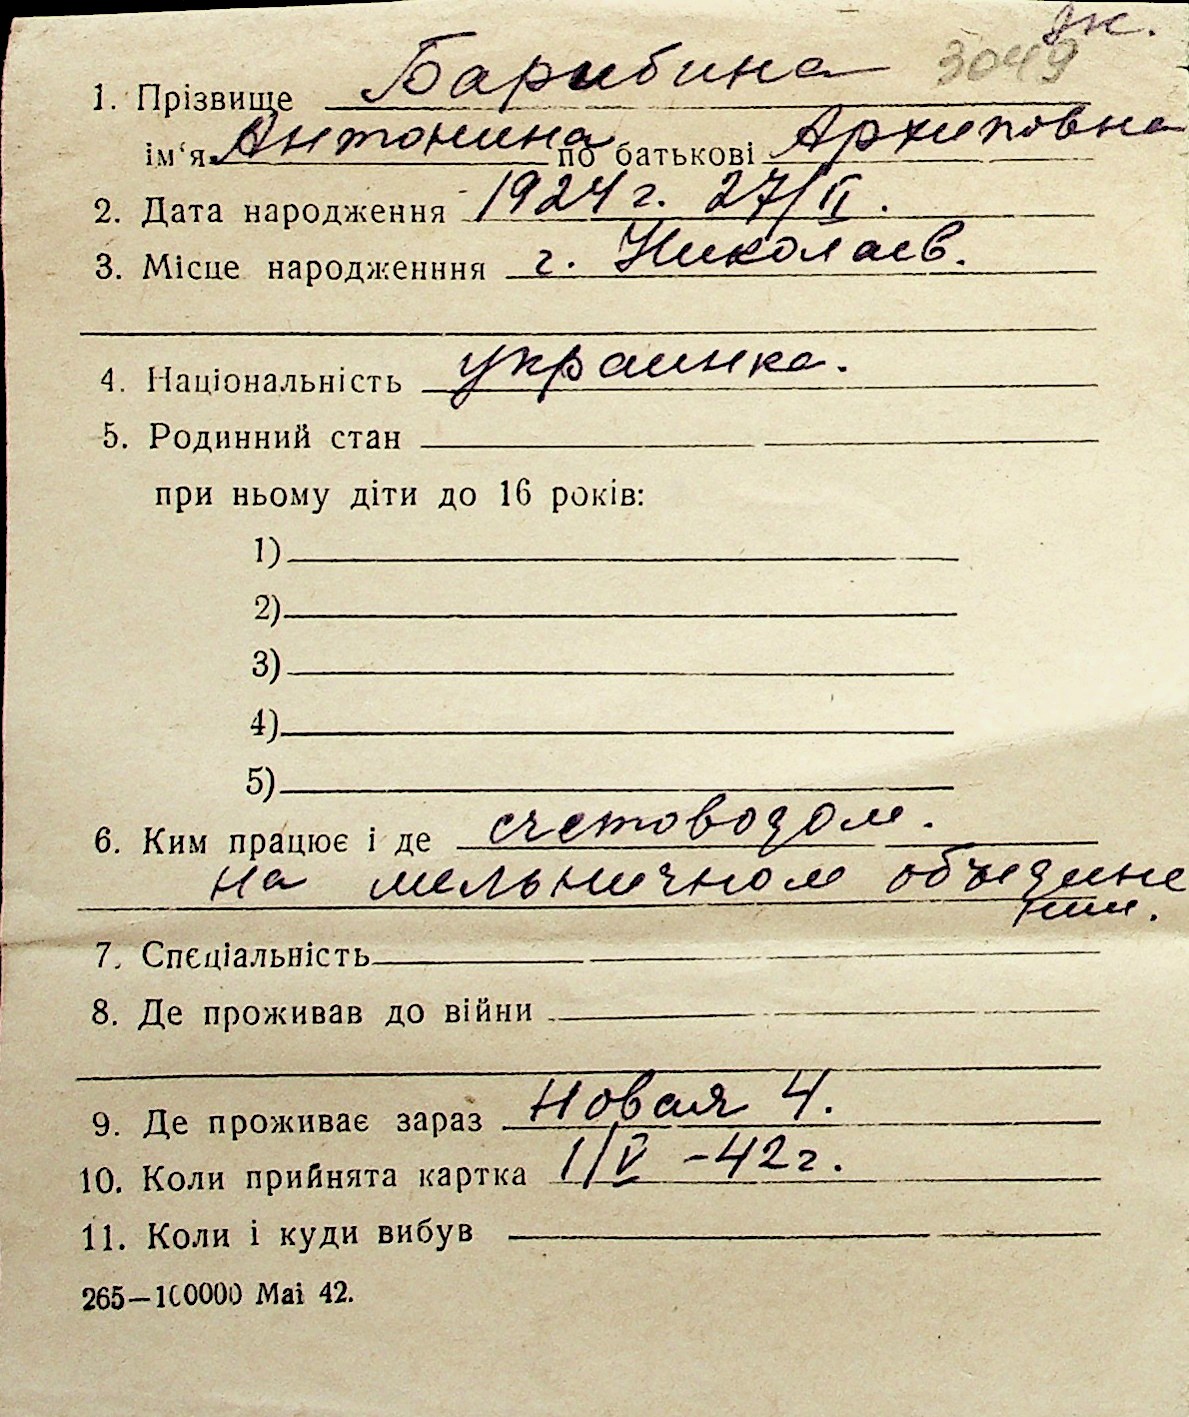 3049
1. Прізвище Барибина
ім'я Антонина по батькові Архиповна
2. Дата народження 1924 г. 27/II.
3. Місце народженння г. Николаев.
4. Національність украинка.
5. Родинний стан
при ньому діти до 16 років:
1)
2)
3)
4)
5)
6. Ким працює і де счетоводом.
на мельничном объедине
нии.
7. Спєціальність
8. Де проживав до війни
9. Де проживає зараз Новая 4.
10. Коли прийнята картка 1/V -42 г.
11. Коли і куди вибув
265—100000 Mai 42.